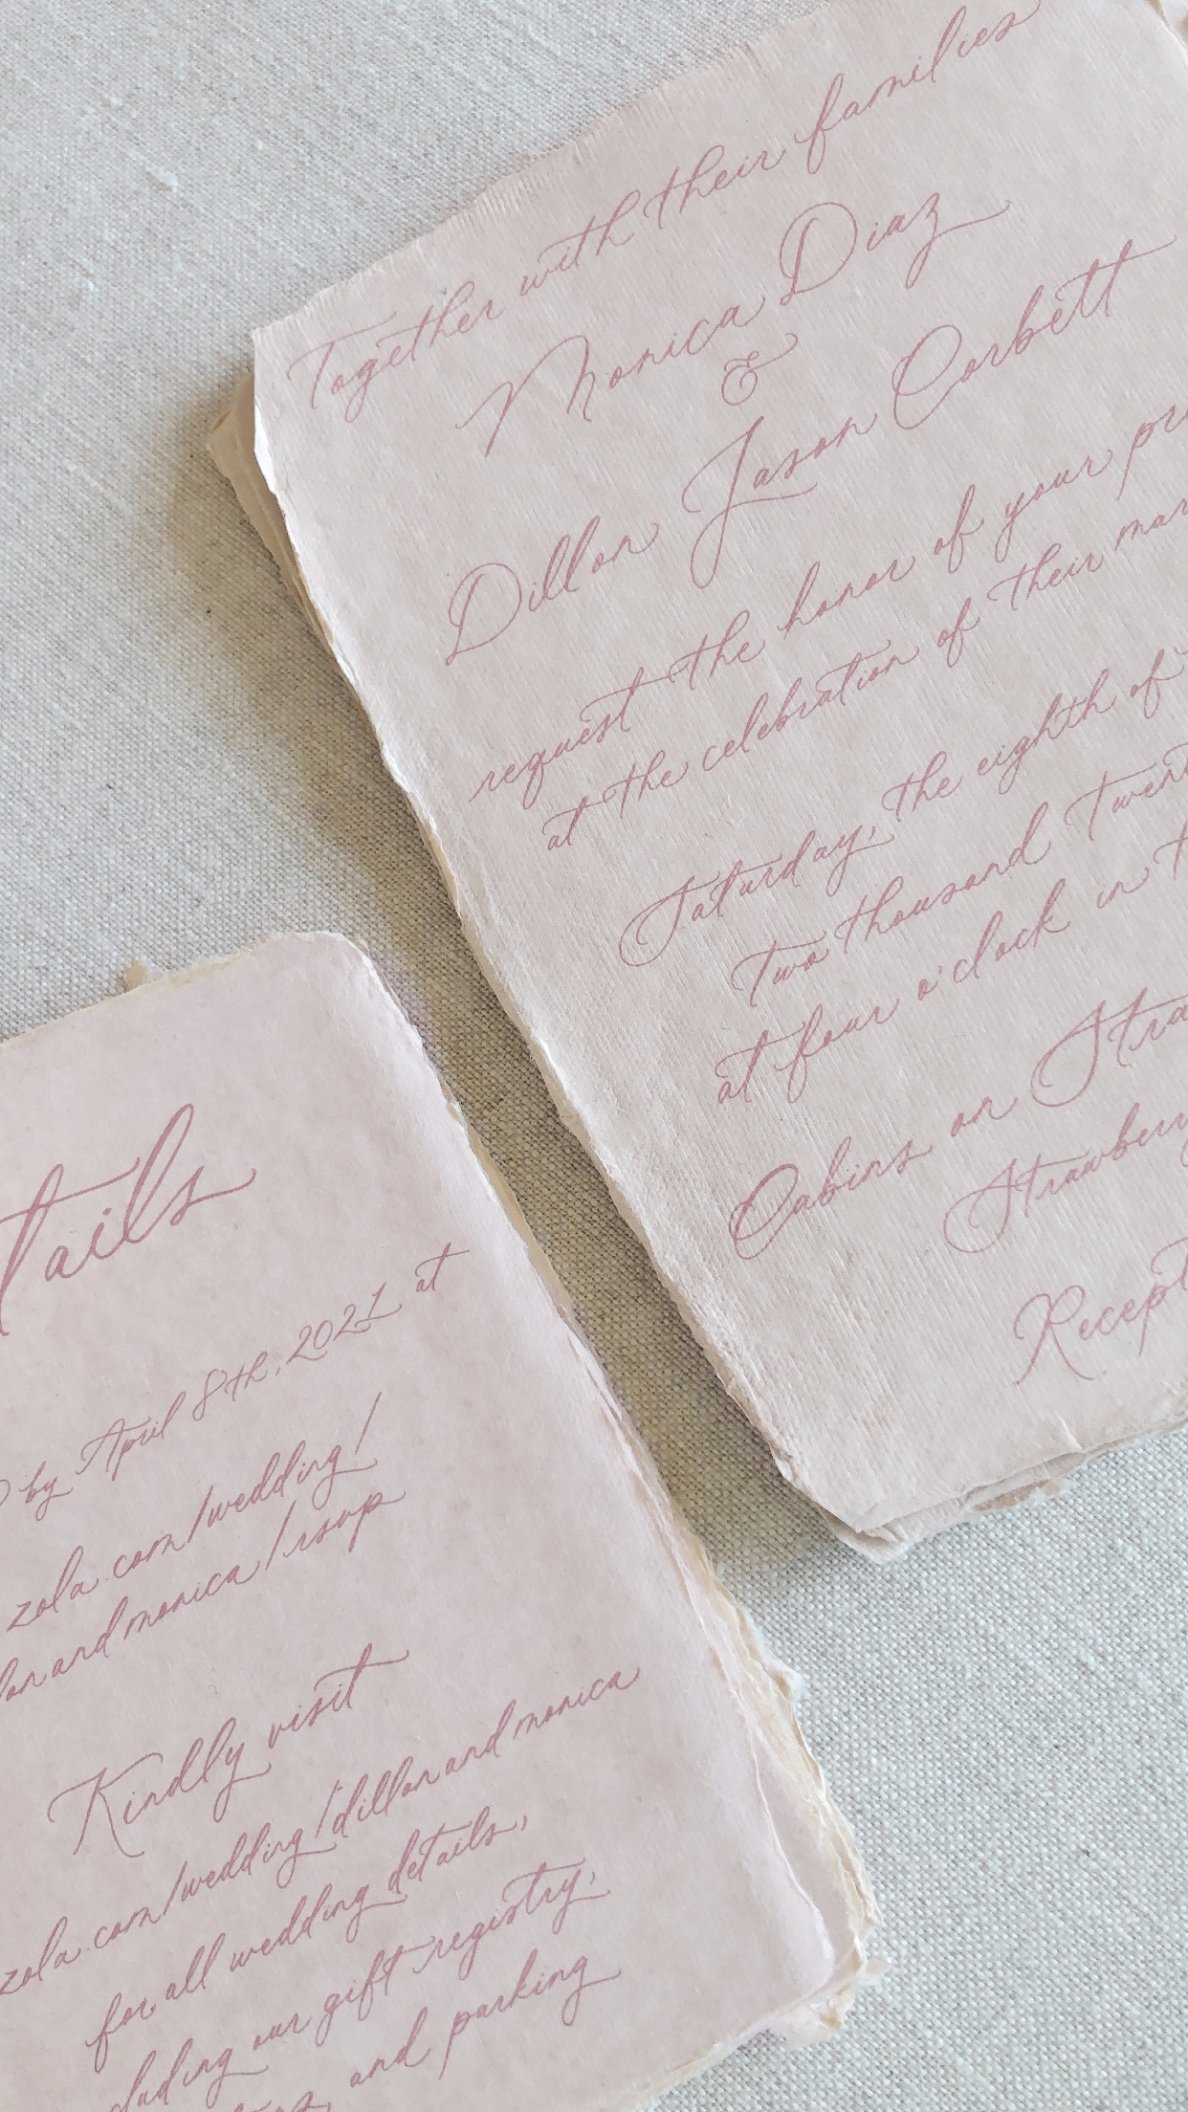 Together with their families
Monica Diaz
&
Dillon Jason Corbett
request the honor of your
at the celebration of their
Saturday, the eighth of
Two thousand
at four o'clock in
Cabins on
tails
by April 8th, 2021 at
zola.com/wedding/
andmonica/rsvp
Kindly visit
zola.com/wedding/dillonandmonica
for all wedding details,
our gift registry,
and parking